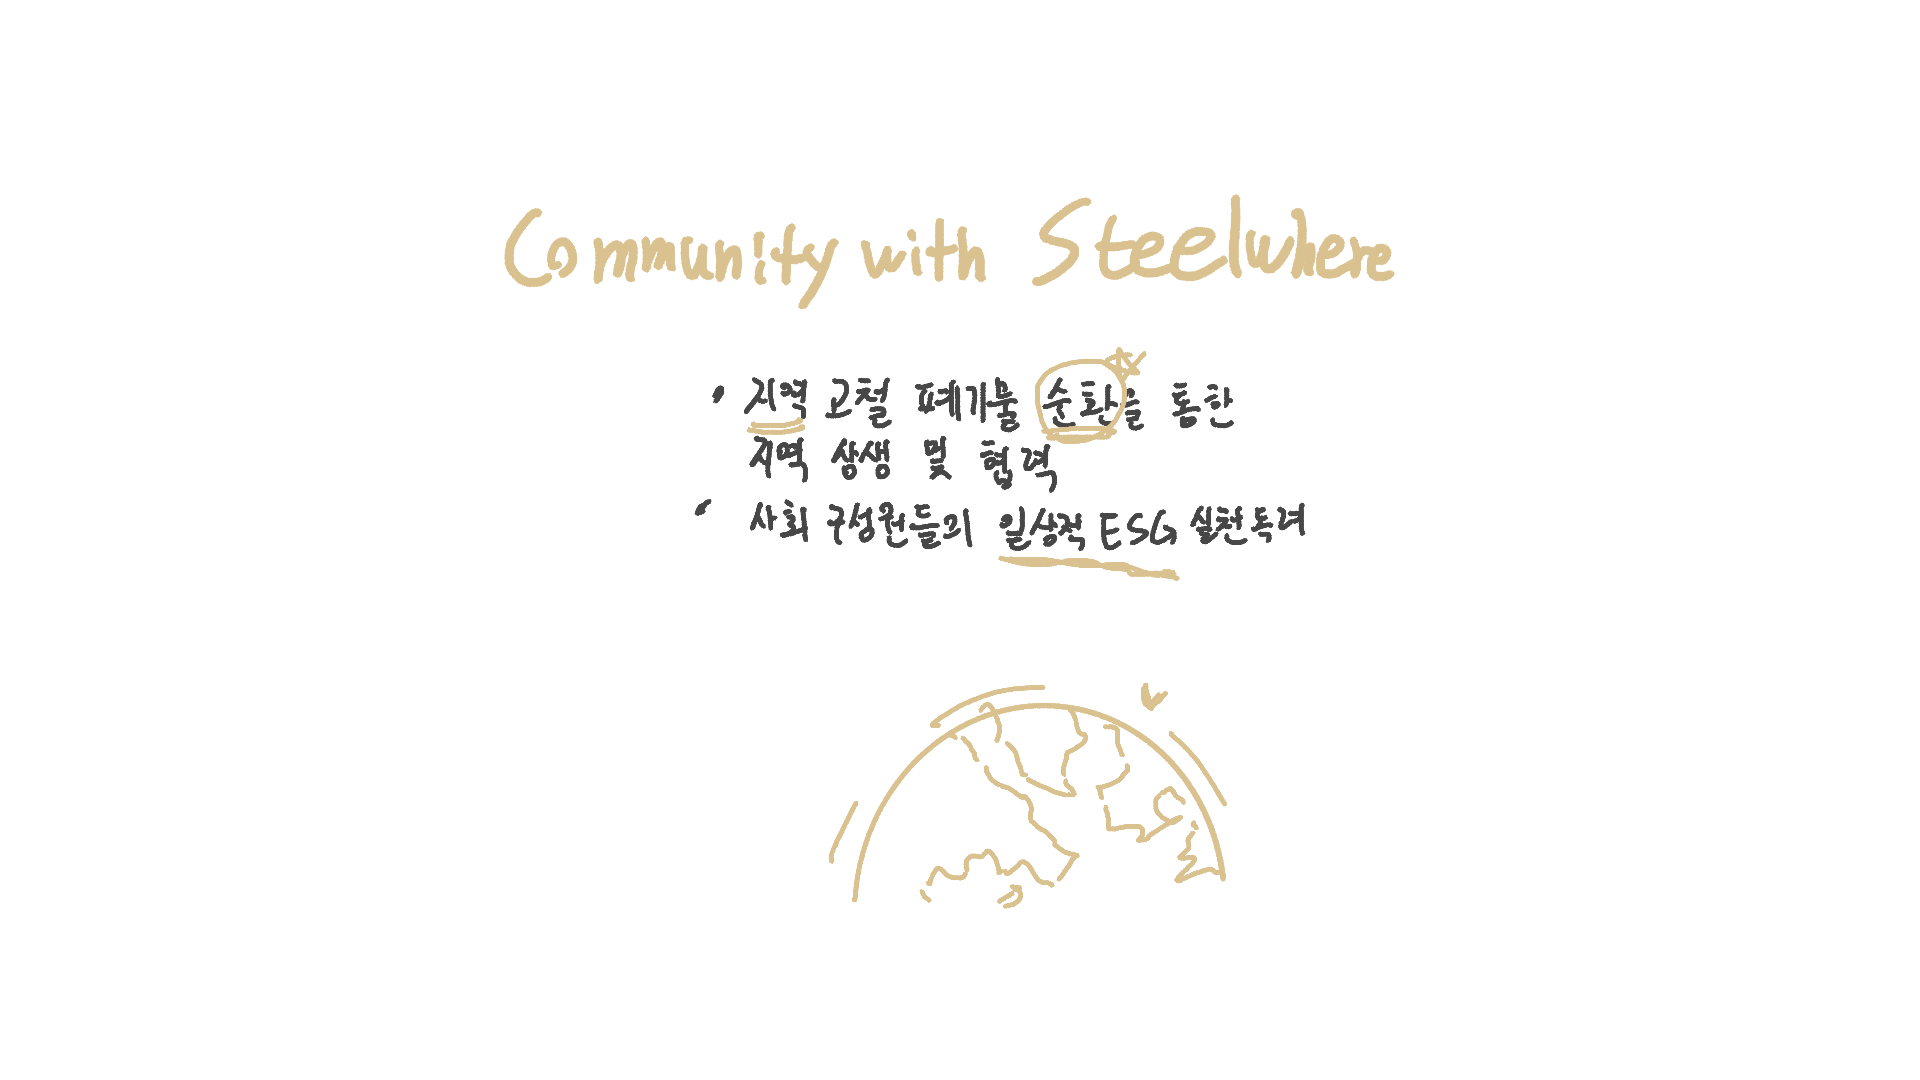 Community with Steelwhere
• 지역 고철 폐기물 순환을 통한
지역 상생 및 협력
• 사회 구성원들의 일상적 ESG 실천독려